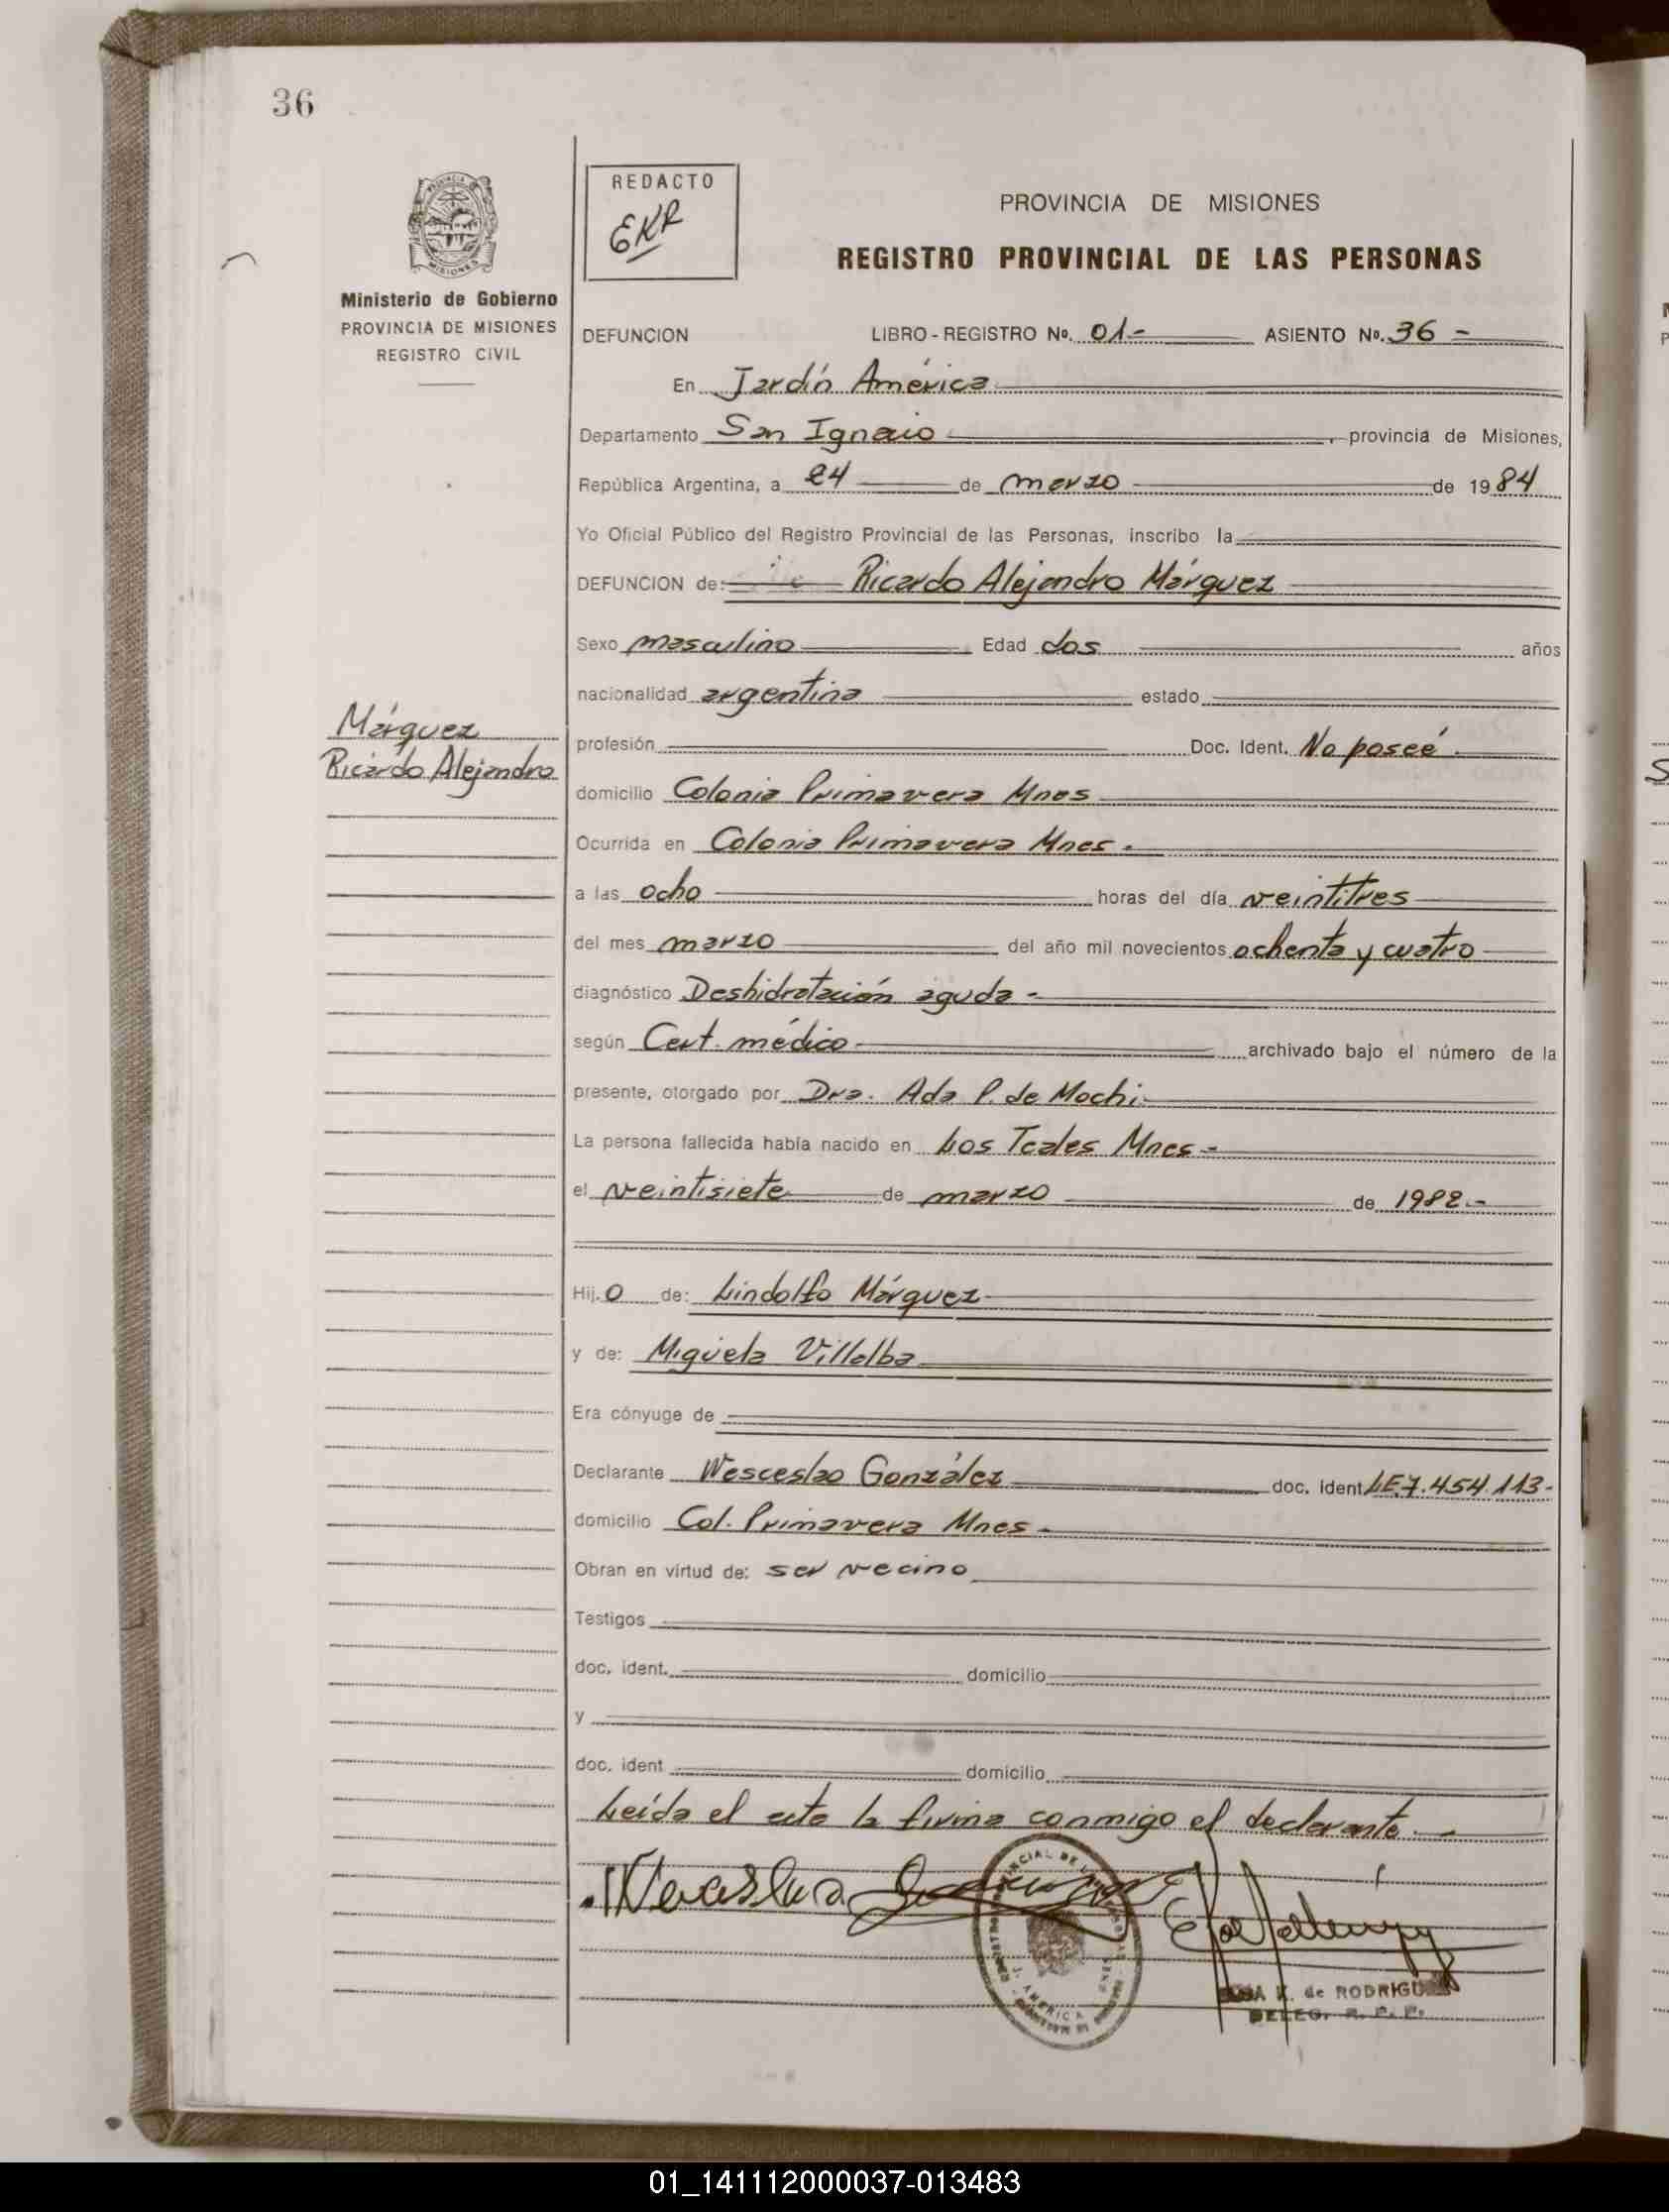 36
REDACTO
EKR
PROVINCIA DE MISIONES
REGISTRO PROVINCIAL DE LAS PERSONAS
Ministerio de Gobierno
PROVINCIA DE MISIONES
REGISTRO CIVIL
DEFUNCION LIBRO - REGISTRO Nº. 01.- ASIENTO Nº. 36 -
En Jardín América
Departamento San Ignacio , provincia de Misiones,
República Argentina, a 24 de marzo de 1984
Yo Oficial Público del Registro Provincial de las Personas, inscribo la
DEFUNCION de: Ricardo Alejandro Márquez
Sexo masculino Edad dos años
nacionalidad argentina estado
Márquez
Ricardo Alejandro
profesión Doc. Ident. No poseé.
domicilio Colonia Primavera Mnes
Ocurrida en Colonia Primavera Mnes.
a las ocho horas del día veintitres
del mes marzo del año mil novecientos ochenta y cuatro
diagnóstico Deshidratación aguda -
según Cert. médico archivado bajo el número de la
presente, otorgado por Dra. Ada P. de Mochi
La persona fallecida había nacido en Los Teales Mnes -
el veintisiete de marzo de 1982.-
Hij.o de: Lindolfo Márquez
y de: Miguela Villalba
Era cónyuge de
Declarante Wesceslao González doc. ident. LE.7.454.113-
domicilio Col. Primavera Mnes -
Obran en virtud de: ser vecino
Testigos
doc. ident. domicilio
y
doc. ident domicilio
Leída el acta la firma conmigo el declarante. -
K. de RODRIGU
DELEG. R. P. P.
J. AMERICA
01_141112000037-013483